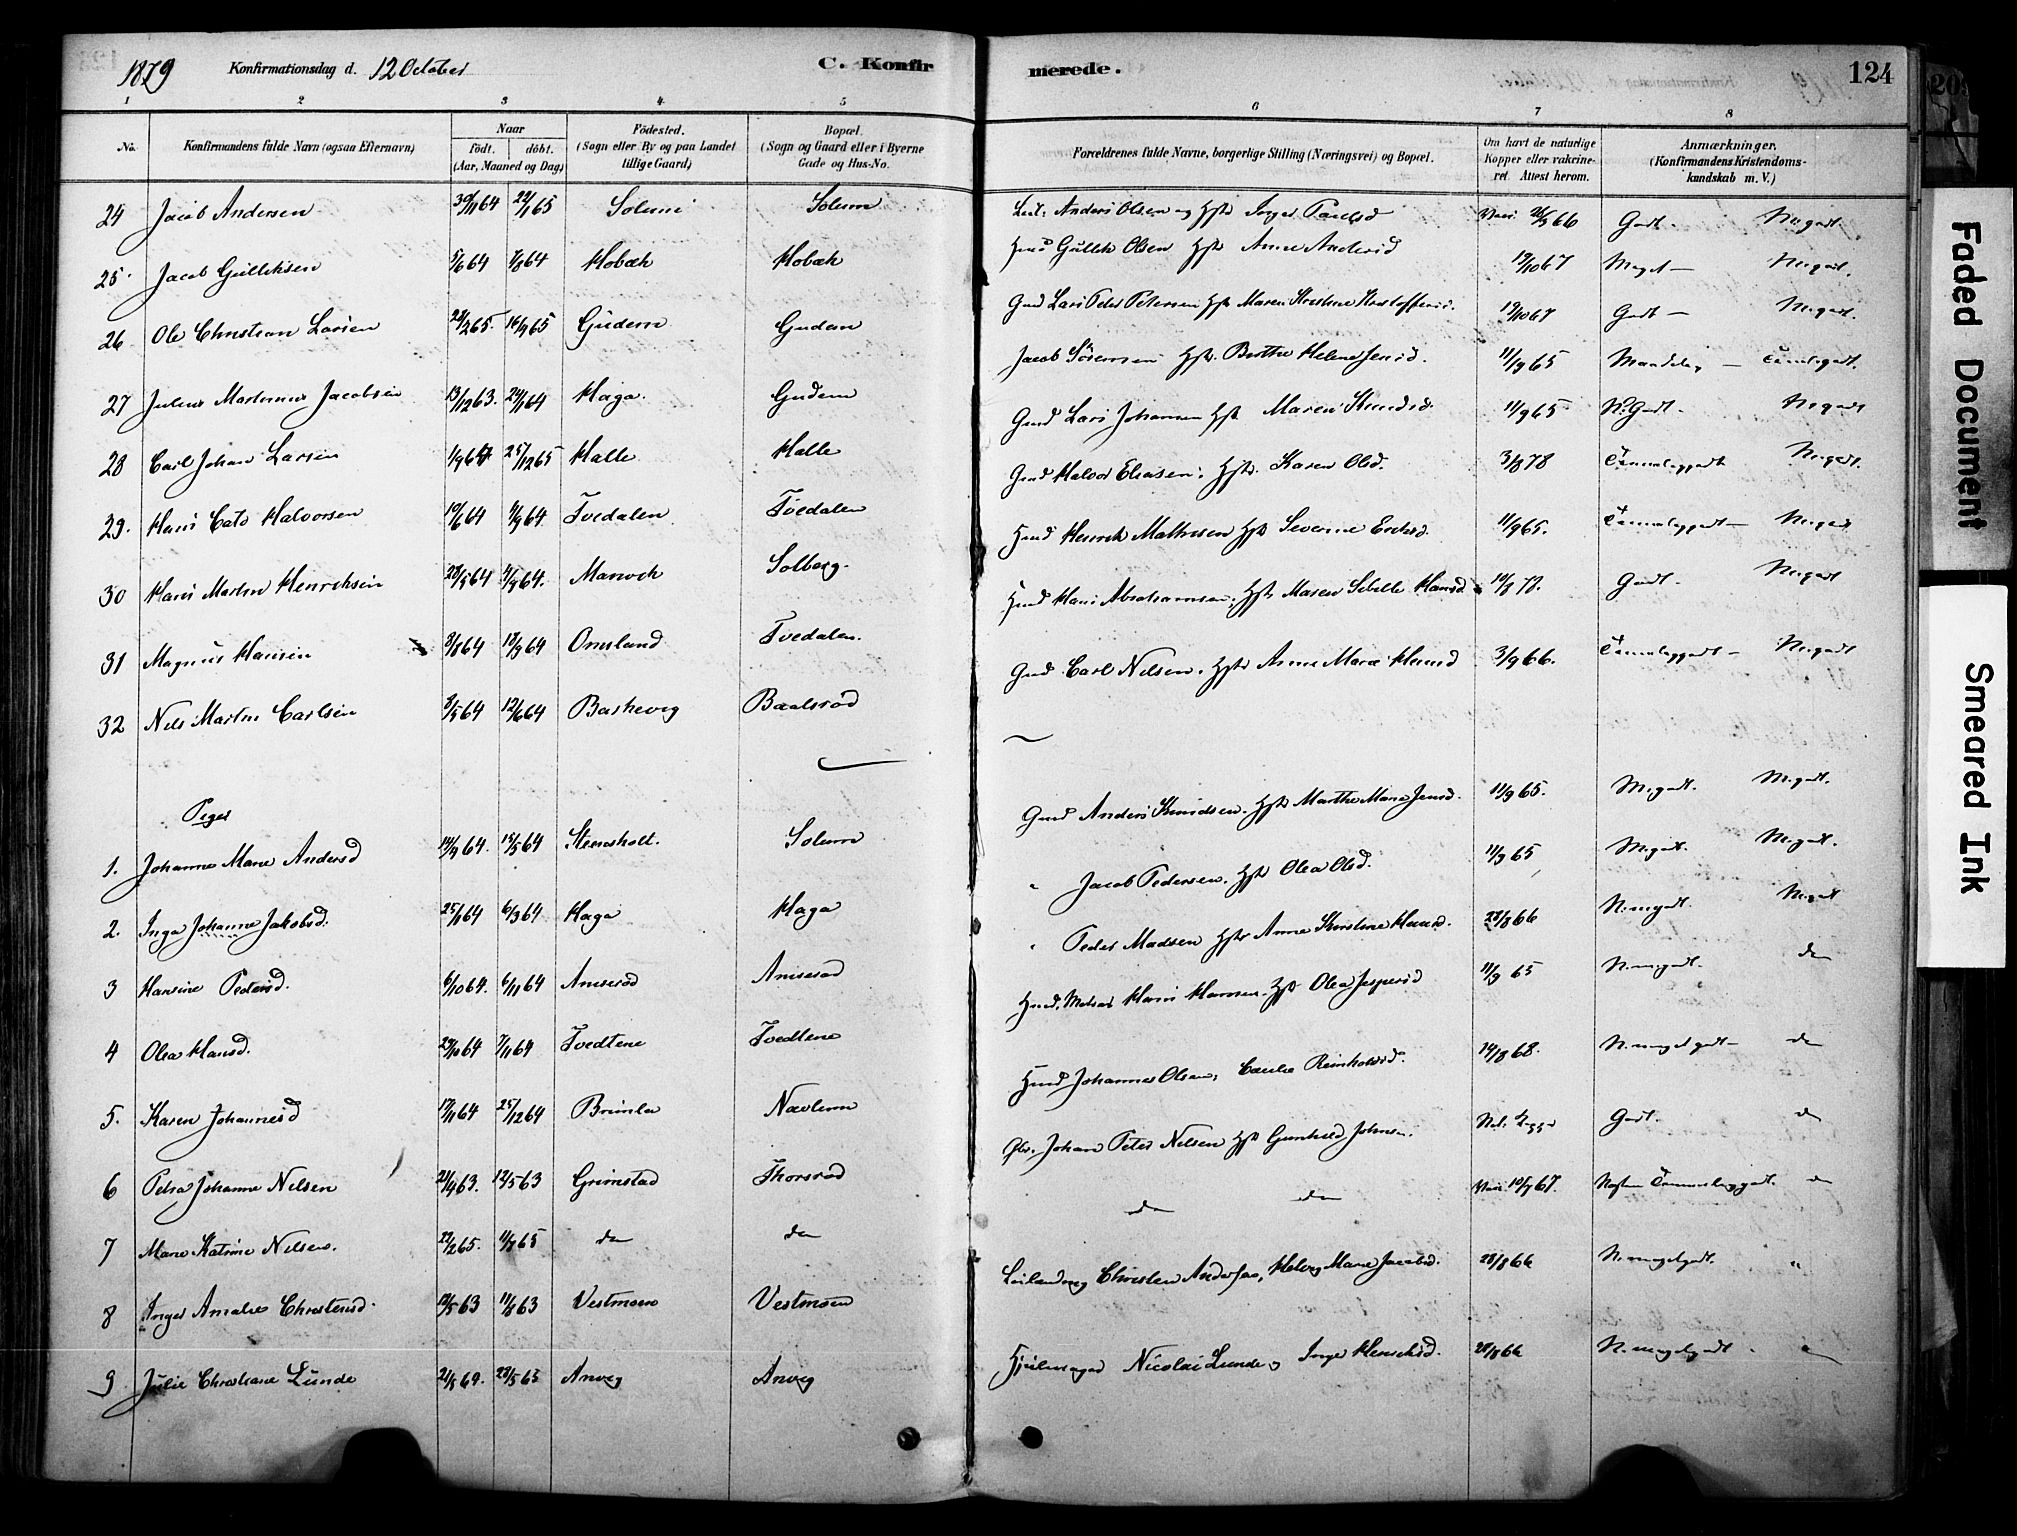 1879 Konfirmationsdag d. 12 October C. Konfirmerede. 124
1 2 3 4 5 6 7 8
No. Konfirmandens fulde Navn (ogsaa Efternavn) Naar Født. døbt. (Aar, Maaned og Dag) Fødested. (Sogn eller By og paa Landet tillige Gaard) Bopæl. (Sogn og Gaard eller i Byerne Gade og Hus-No. Forældrenes fulde Navne, borgerlige Stilling (Næringsvei) og Bopæl. Om havt de naturlige Kopper eller vakcineret. Attest herom. Anmærkninger. (Konfirmandens Kristendomskundskab m. V.)
24 Jacob Andersen 30/11 64 29/1 65 Solum Solum Anders Olsen og Hst Inger 66 Godt M.godt
25 Jacob Gulliksen 5/6 64 7/8 64 Hobæk Hobæk Gullik Olsen Hst Anne Andersd 13/10 67 Meget M.godt.
26 Ole Christian Larsen 28/2 65 16/4 65 Gudem Gudem Gmd Lars Peter Petersen Hst Maren Kristine Kristoffersd. 13/10 67 Godt M.godt.
27 Julius Martinius Jacobsen 13/12 63. 24/1 64 Haga Gudem Jacob Sørensen Hst. Berthe Helene Jensd. 11/9 65 Maadelig Temmeliggodt.
28 Carl Johan Larsen 1/9 64 25/12 65 Halle Halle Gmd Lars Johansen Hst Maren Knudsd. 11/9 65 N.Godt. M.godt
29. Hans Cato Halvorsen 10/6 64 4/9 64 Tvedalen Tvedalen Gmd Halvor Eliasen. Hst. Karen Olsd. 3/8 78 Temmeliggodt M.godt.
30 Hans Martin Henriksen 28/5 64 4/9 64. Manvik Solberg. Hmd Henrik Mathisen Hst Severine Ericksd. 11/9 65. Temmeliggodt M.godt
31 Magnus Hansen 8/8 64 18/9 64 Omsland Tvedalen. Hmd Hans Abrahamsen. Hst Maren Sibille Hansd 10/8 77. Godt. M.godt
32 Nils Martin Carlsen 8/5 64 12/6 64 Barkevig Baalsrød Gmd Carl Nilsen. Hst Anne Marie Hansd 3/9 66. Temmeliggodt M.godt
Piger
1. Johanne Marie Andersd 14/4 64. 15/5 64 Stensholt. Solum Gmd Anders Knudsen. Hst Marthe Marie Jensd. 11/9 65. M.godt. M.godt.
2. Inga Johanne Jakobsd. 25/1 64 6/3 64 Haga Haga " Jacob Pedersen. Hst Olea Olsd. 11/9 65 M.godt. M.godt.
3 Hansine Pedersd. 6/10 64. 6/11 64 Amserød Amserød " Peder Madsen Hst Anne Kirstine Hansd. 28/8 66 N.mgodt. M.godt
4 Olea Hansd. 29/10 64 7/11 64 Tvedtene Tvedtene Hmd. Matros Hans Hansen. Hst Olea Jespersd 11/9 65 N.mgodt. do
5. Karen Johannesd 17/11 64 25/12 64 Brunla Nævlum Hmd Johannes Olsen, Cecilie Reinholdsd. 14/8 68. N.megetgodt do
6 Petra Johanne Nilsen 21/4 63. 17/5 63 Grimstad Thorsrød Johan Peter Nilsen Hst Gunhild Johnsen. Nat. Kopper Godt. do
7 Marie Katrine Nilsen. 22/2 65. 65 do do do do 10/7 67. Næsten Temmeliggodt. do
8 Inger Amalie Christensd. 12/5 63 11/8 63 Vestmoen Vestmoen Christen Andersen, Helvig Marie Jacobsd. 28/8 66 N.megetgodt. "
9 Julie Christiane Lunde 21/5 64. 28/5 65 Anvig Anvig Nicolai Lunde og Inger Henriksd. 28/8 66 N.megetgodt. "
Faded Document
Smeared Ink